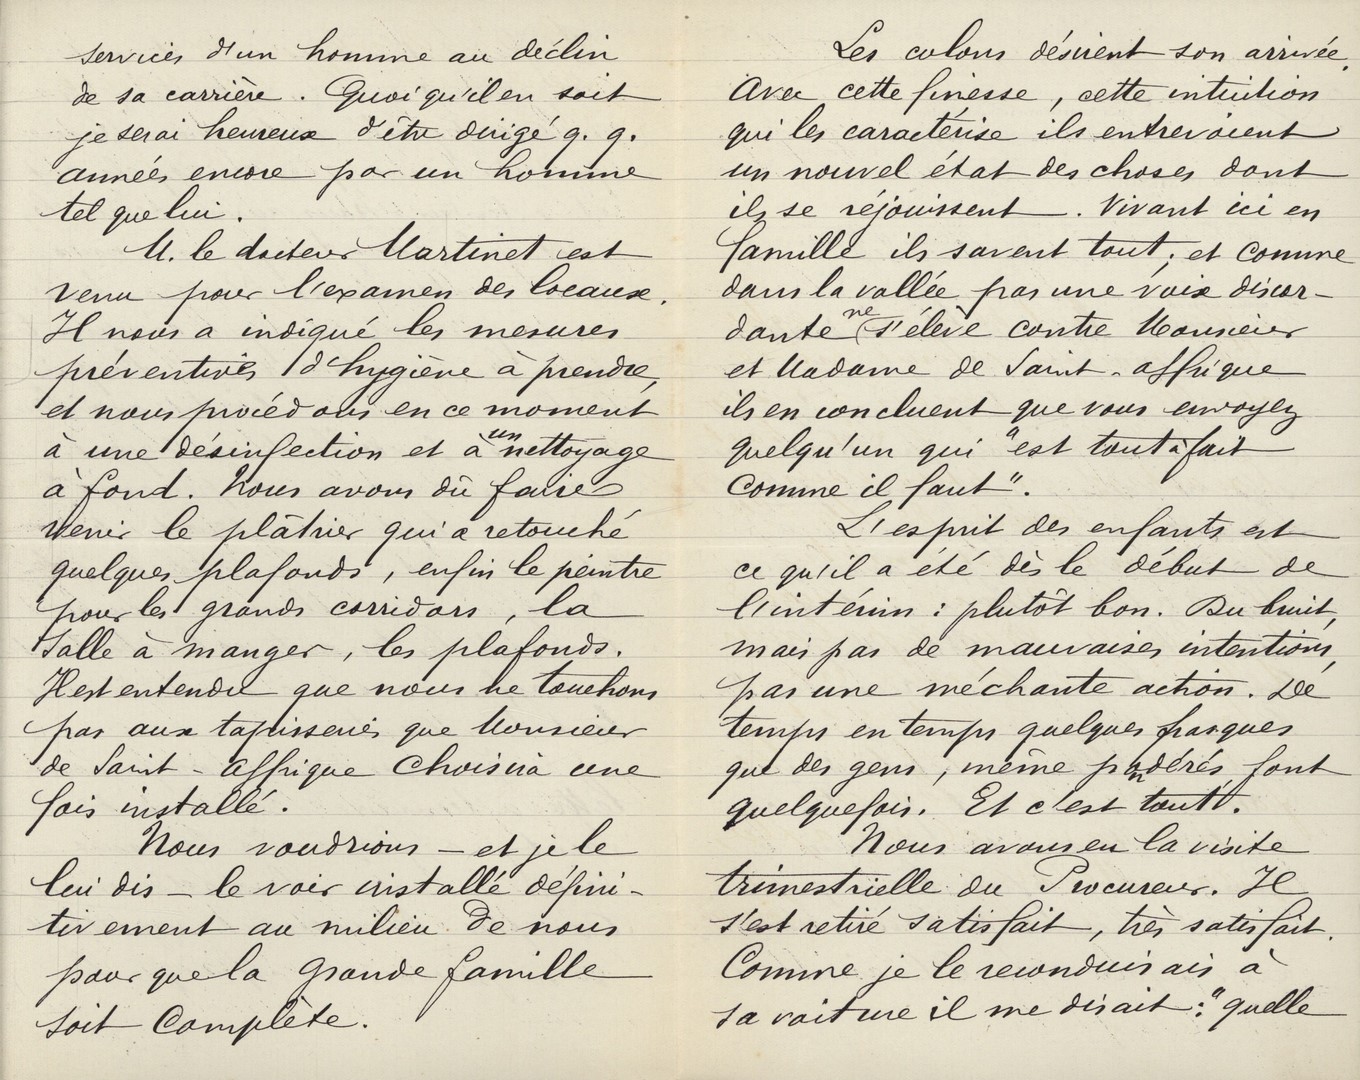 services d'un homme au déclin
de sa carrière. Quoiqu'il en soit
je serai heureux d'être dirigé q. q.
années encore par un homme
tel que lui.
M. le docteur Martinet est
venu pour l'examen des locaux.
Il nous a indiqué les mesures
préventives d'hygiène à prendre,
et nous procédons en ce moment
à une désinfection et à un nettoyage
à fond. Nous avons dû faire
venir le plâtrier qui a retouché
quelques plafonds, enfin le peintre
pour les grands corridors, la
salle à manger, les plafonds.
Il est entendu que nous ne touchons
pas aux tapisseries que Monsieur
de Saint-Affrique choisira une
fois installé.
Nous voudrions – et je le
lui dis – le voir installé défini-
tivement au milieu de nous
pour que la grande famille
soit complète.
Les colons désirent son arrivée.
Avec cette finesse, cette intuition
qui les caractérise ils entrevoient
un nouvel état des choses dont
ils se réjouissent. Vivant ici en
famille ils savent tout; et comme
dans la vallée pas une voix discor-
dante ne s'élève contre Monsieur
et Madame de Saint-Affrique
ils en concluent que vous envoyez
quelqu'un qui "est tout à fait
comme il faut".
L'esprit des enfants est
ce qu'il a été dès le début de
l'intérim : plutôt bon. Du bruit,
mais pas de mauvaises intentions,
pas une méchante action. De
temps en temps quelques frasques
que des gens, même pondérés font
quelquefois. Et c'est tout.
Nous avons eu la visite
trimestrielle du Procureur. Il
s'est retiré satisfait, très satisfait.
Comme je le reconduisais à
sa voiture il me disait : "quelle